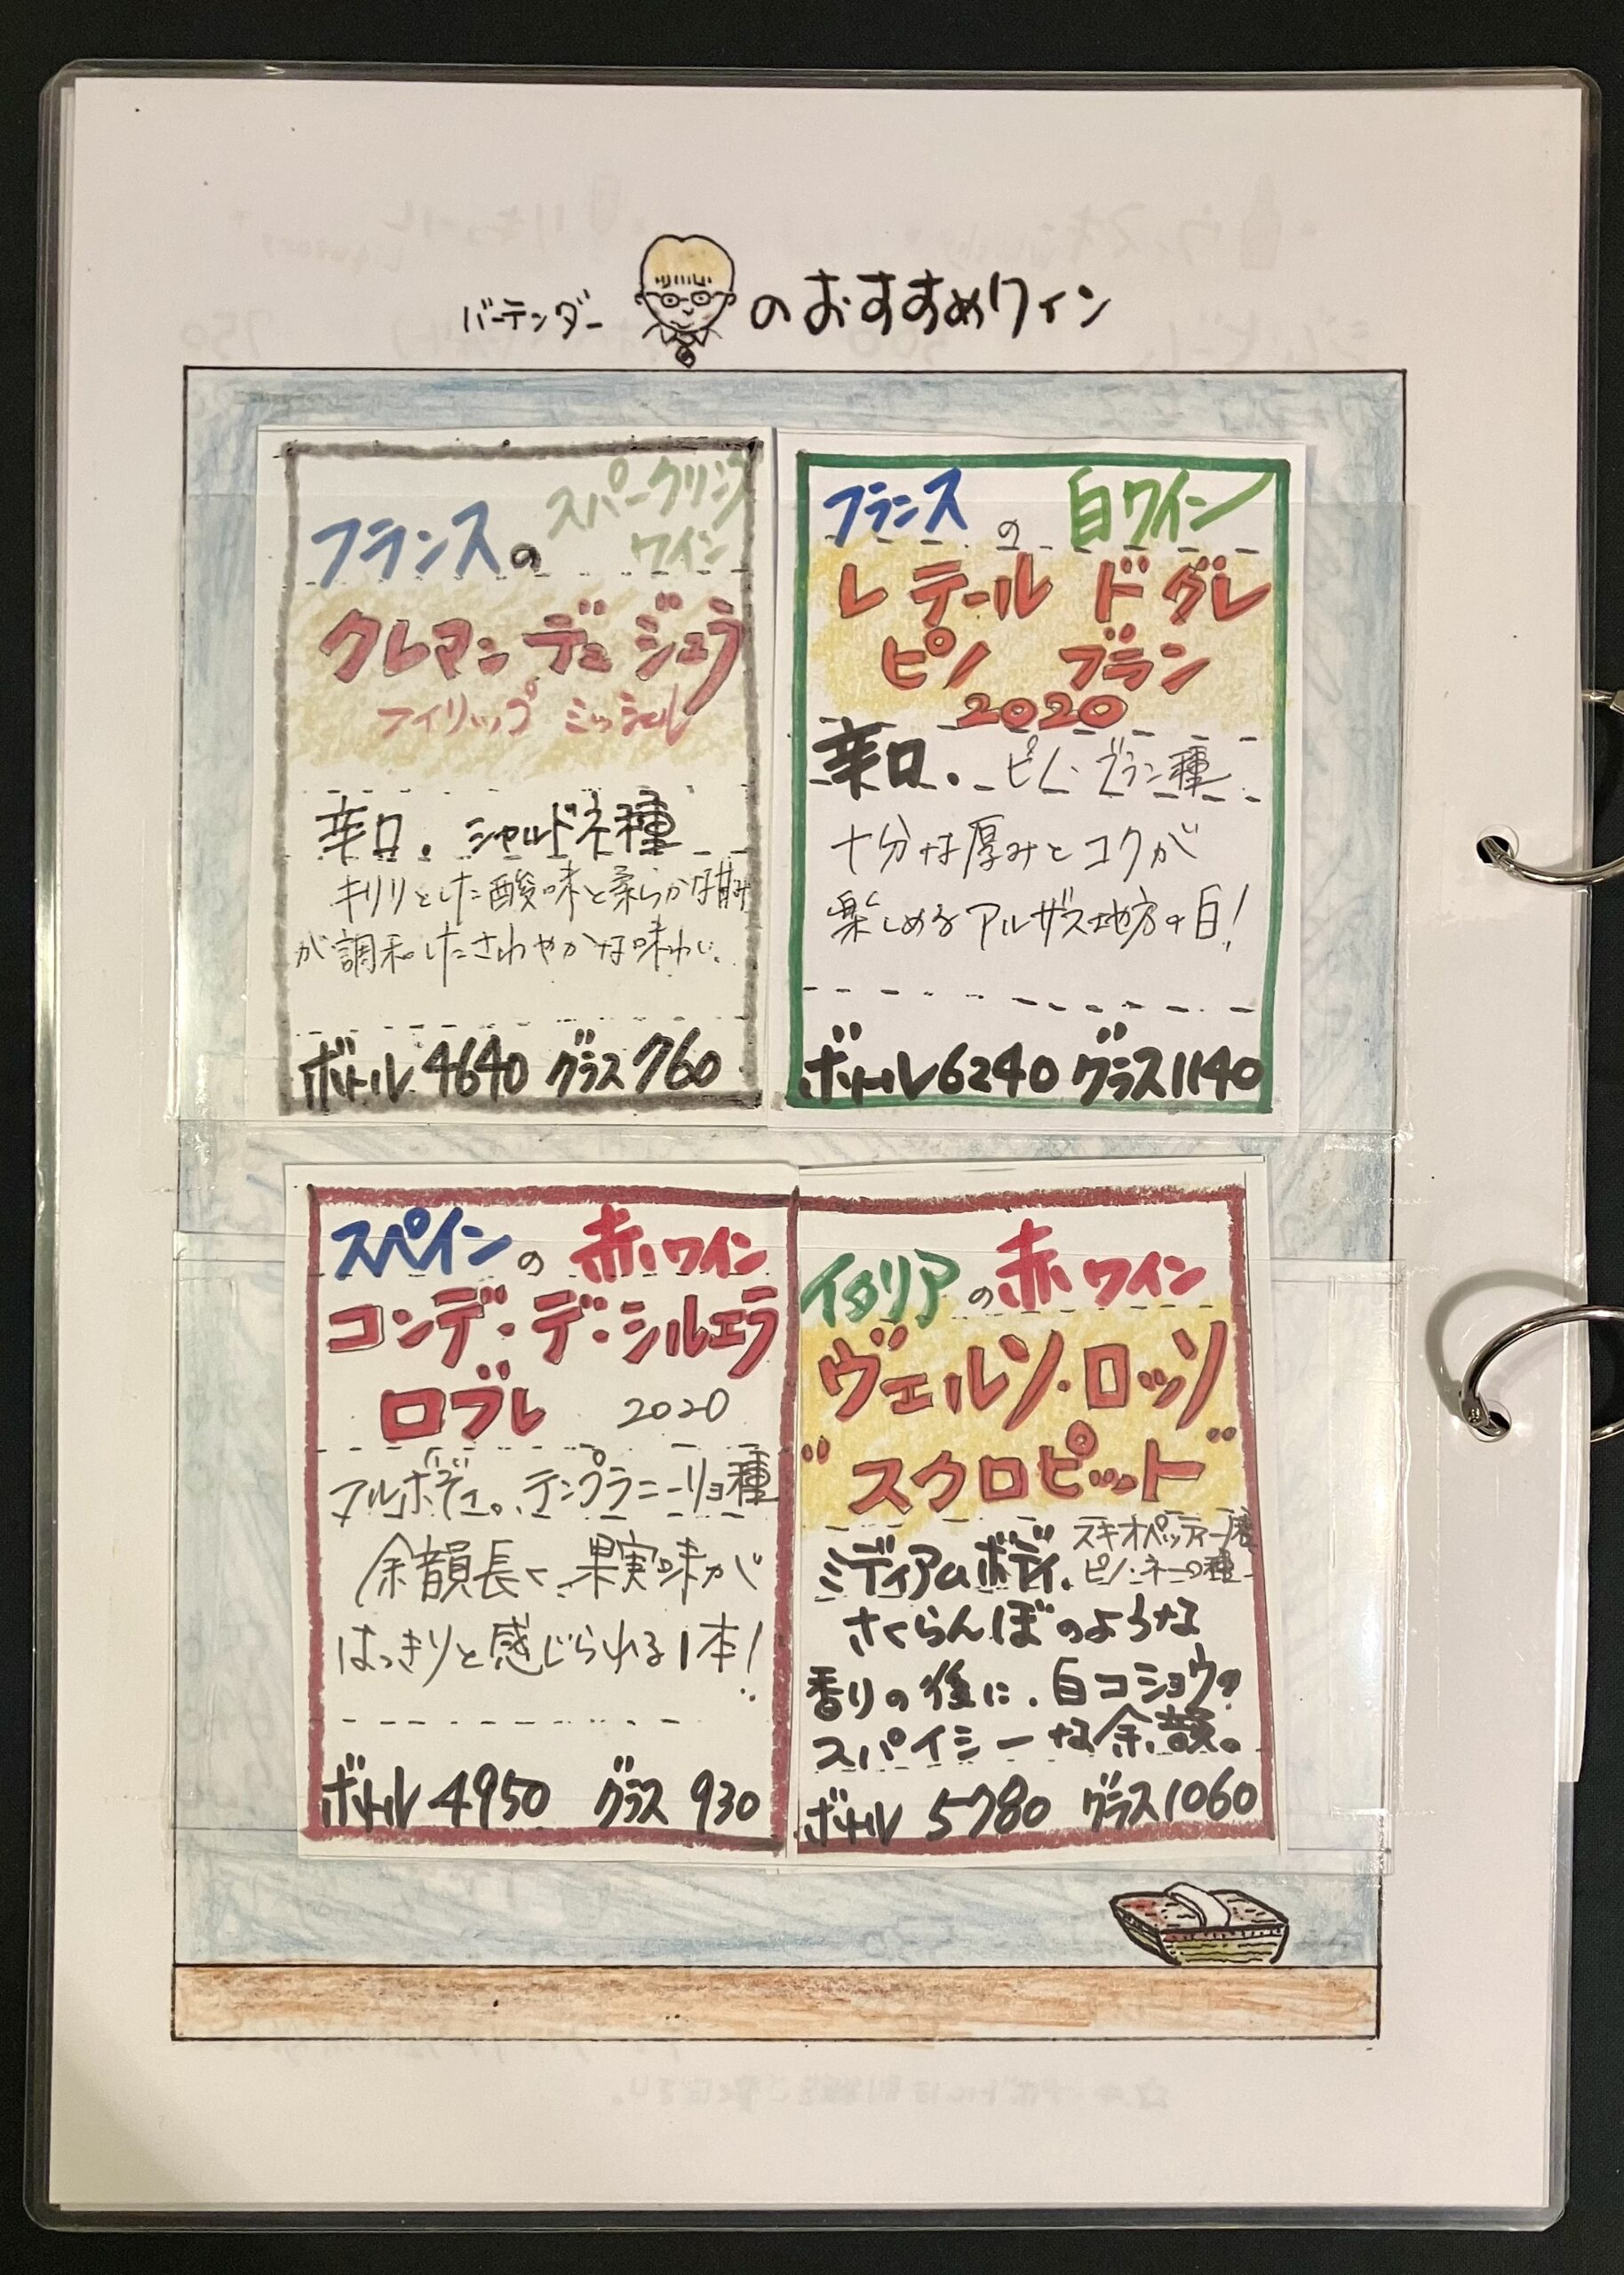 バーテンダー のおすすめワイン
フランスの スパークリング
ワイン
クレマン デュ ジュラ
フィリップ ミッシェル
辛口. シャルドネ種
キリリとした酸味と柔らかな甘み
が調和したさわやかな味わい.
ボトル 4640 グラス 760
フランス の 白ワイン
レ テール ド グレ
ピノ ブラン
2020
辛口. ピノ・ブラン種
十分な厚みとコクが
楽しめるアルザス地方の白!
ボトル 6240 グラス 1140
スペイン の 赤ワイン
コンデ・デ・シルエラ
ロブレ 2020
フルボディ。テンプラニーリョ種
余韻長く、果実味が
はっきりと感じられる1本!
ボトル 4950 グラス 930
イタリア の 赤ワイン
ヴェルソ・ロッソ
"スクロピット"
ミディアムボディ. スキオペッティーノ種
ピノ・ネーロ種
さくらんぼのような
香りの後に、白コショウの
スパイシーな余韻。
ボトル 5780 グラス 1060